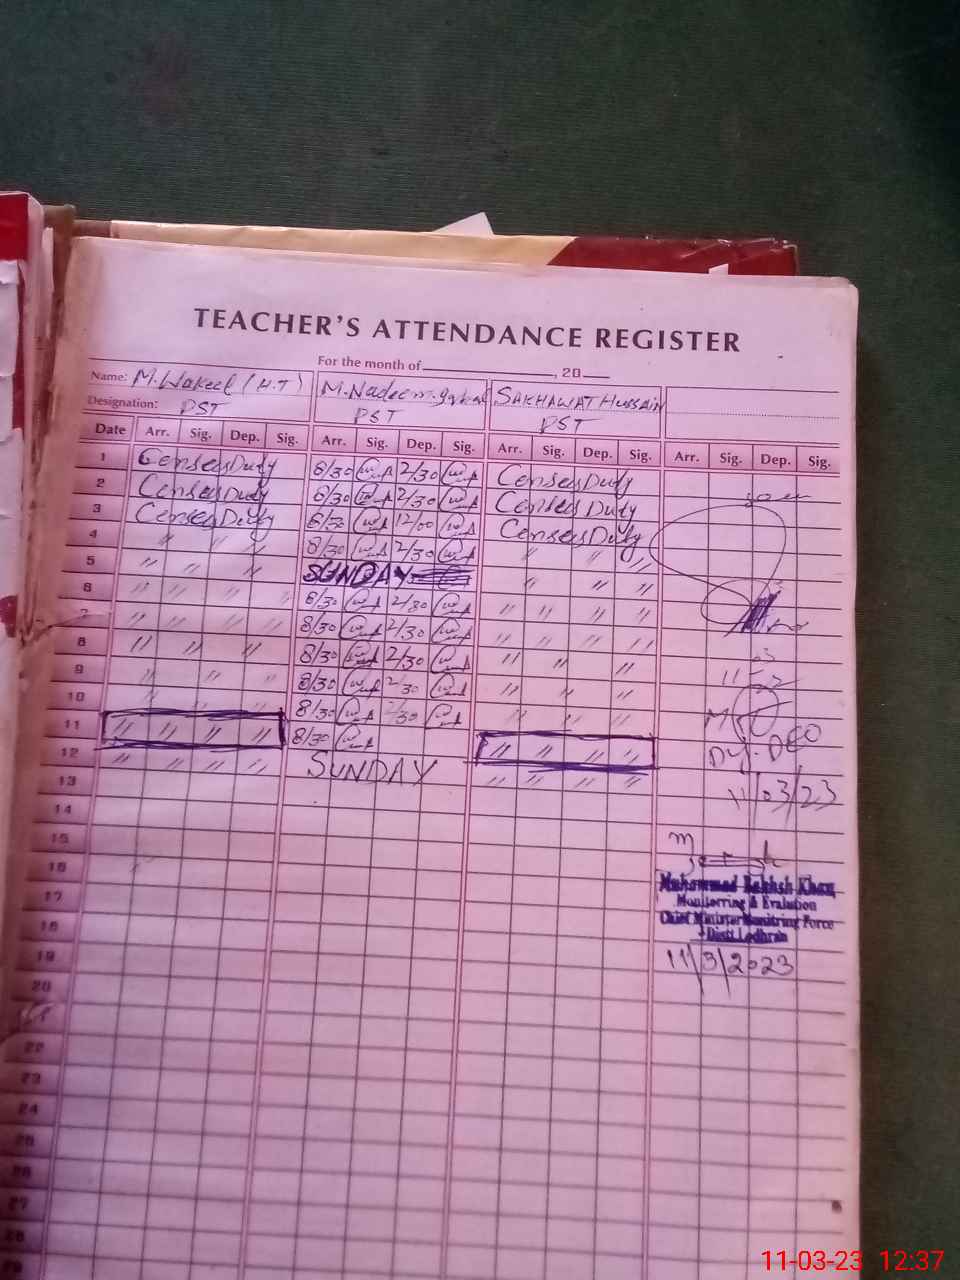 TEACHER'S ATTENDANCE REGISTER
For the month of , 20
Name: M.Wakeel (H.T) M.Nadeem SAKHAWAT Hussain
Designation: PST PST PST
Date Arr. Sig. Dep. Sig. Arr. Sig. Dep. Sig. Arr. Sig. Dep. Sig. Arr. Sig. Dep. Sig.
1 Census Duty 8/30 2/30 Census Duty
2 Census Duty 8/30 2/30 Census Duty
3 Census Duty 8/30 12/00 Census Duty
4 〃 〃 8/30 2/30 〃 〃 〃
5 〃 〃 〃 SUNDAY 〃 〃 〃
6 〃 〃 〃 〃 8/30 2/30 〃 〃 〃 〃
7 〃 〃 〃 〃 8/30 2/30 〃 〃 〃 〃
8 〃 〃 〃 8/30 2/30 〃 〃 〃
9 〃 〃 〃 8/30 2/30 〃 〃 〃
10 〃 8/30 2/30 〃 〃 〃 〃
11 〃 〃 〃 〃 8/30 〃 〃 〃 〃
12 〃 〃 〃 〃 SUNDAY 〃 〃 〃 〃
Dy. DEO
13
11/03/23
14
15
16
Muhammad Bakhsh Khan
17
Monitorring & Evalution
18
Chief Minister Monitring Force
Distt Lodhran
19
11/3/2023
20
22
23
24
25
26
27
28
11-03-23 12:37